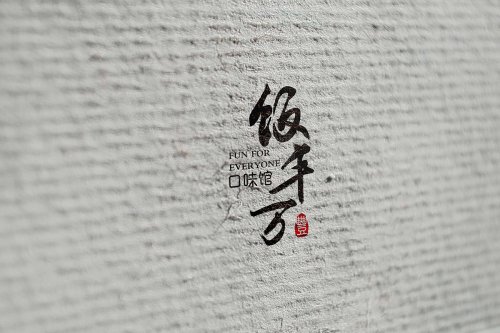 饭丰万
FUN FOR
EVERYONE
口味馆